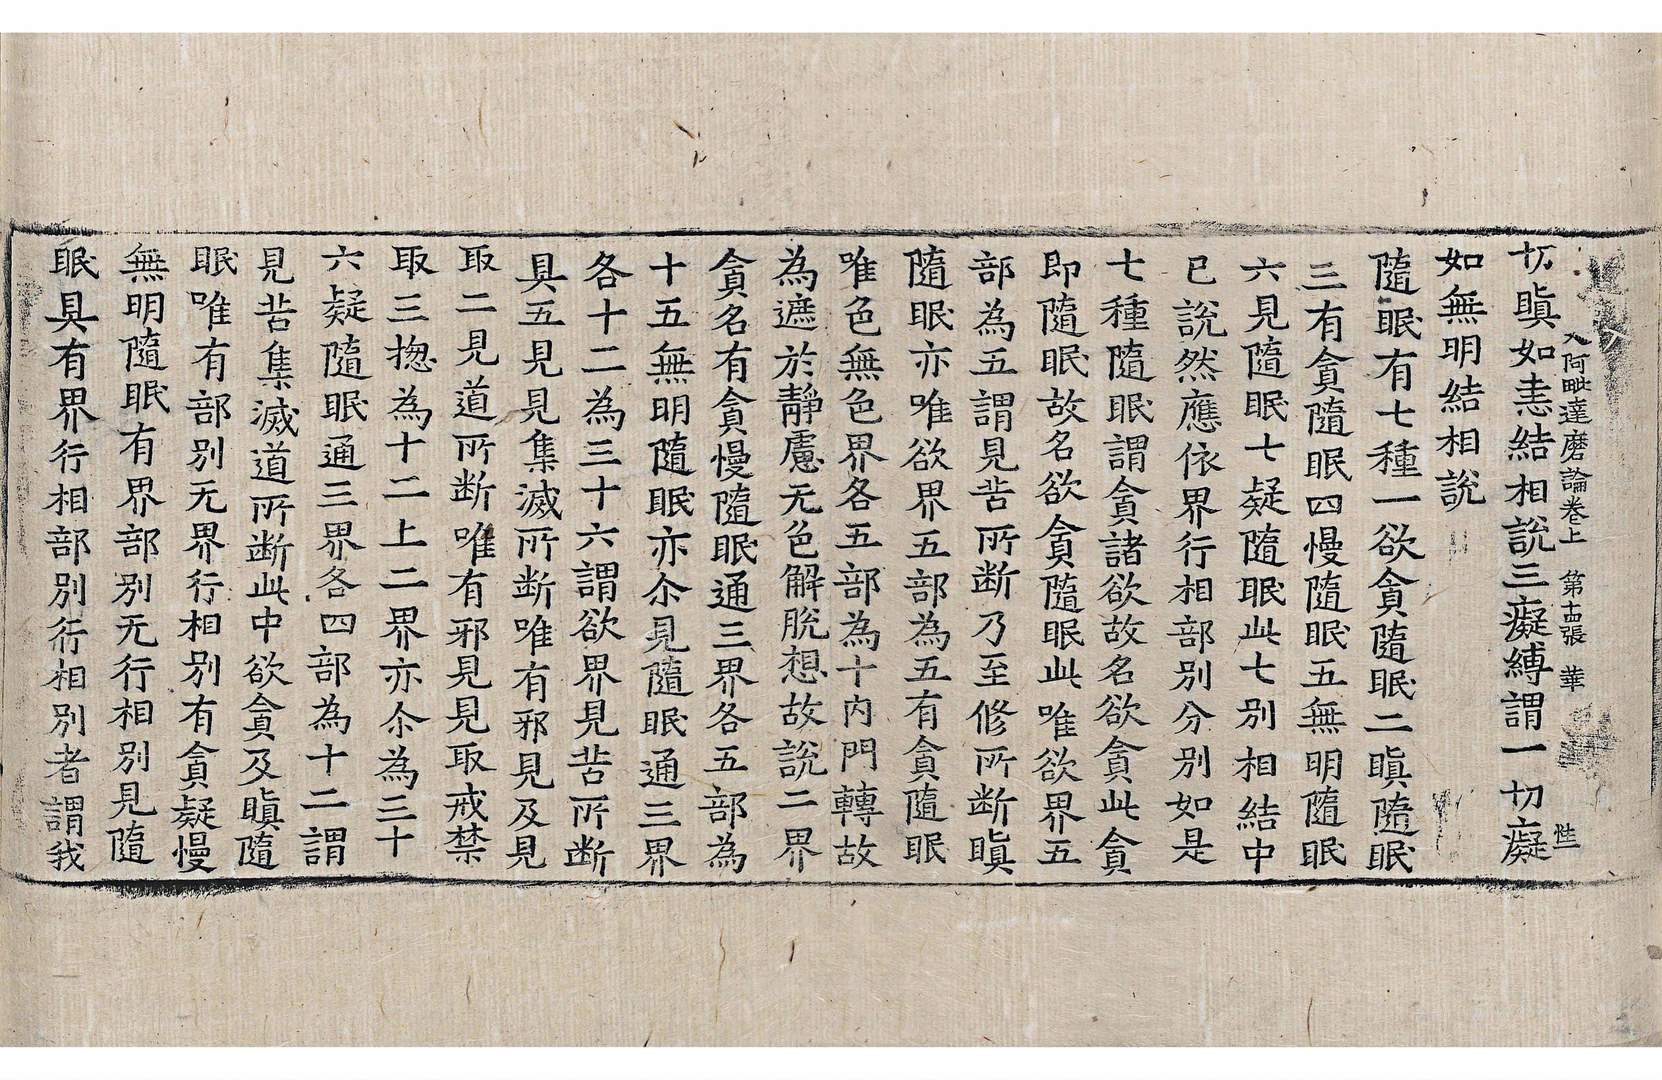 入阿毗達磨論卷上 第十四張 華
切瞋如恚結相說三癡縛謂一切癡
如無明結相說
隨眠有七種一欲貪隨眠二瞋隨眠
三有貪隨眠四慢隨眠五無明隨眠
六見隨眠七疑隨眠此七別相結中
已說然應依界行相部別分別如是
七種隨眠謂貪諸欲故名欲貪此貪
即隨眠故名欲貪隨眠此唯欲界五
部為五謂見苦所断乃至修所断瞋
隨眠亦唯欲界五部為五有貪隨眠
唯色無色界各五部為十內門轉故
為遮於靜慮无色解脫想故說二界
貪名有貪慢隨眠通三界各五部為
十五無明隨眠亦尒見隨眠通三界
各十二為三十六謂欲界見苦所断
具五見見集滅所断唯有邪見及見
取二見道所断唯有邪見見取戒禁
取三揔為十二上二界亦尒為三十
六疑隨眠通三界各四部為十二謂
見苦集滅道所断此中欲貪及瞋隨
眠唯有部別无界行相別有貪疑慢
無明隨眠有界部別无行相別見隨
眠具有界行相部別行相別者謂我